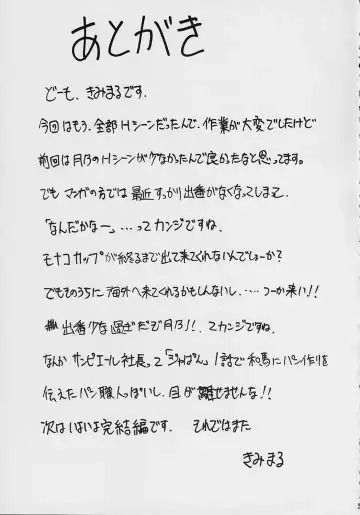 あとがき
どーも、きみまるです.
今回はもう、全部Hシーンだったんで、作業が大変でしたけど
前回は月乃のHシーンが少なかったんで良かったなと思ってます。
でもマンガの方では最近すっかり出番がなくなってしまって、
「なんだかなー」…ってカンジですね.
モナコカップが終るまで出て来てくれないんでしょーか?
でもそのうちに海外へ来てくれるかもしんないし、……つーか来い!!
出番少な過ぎだぞ月乃!!、てカンジですね.
なんかサンピエール社長って「ジャぱん」1話で和馬にパン作りを
伝えたパン職人っぽいし、目が離せませんな!!
次はいよいよ完結編です. それではまた
きみまる